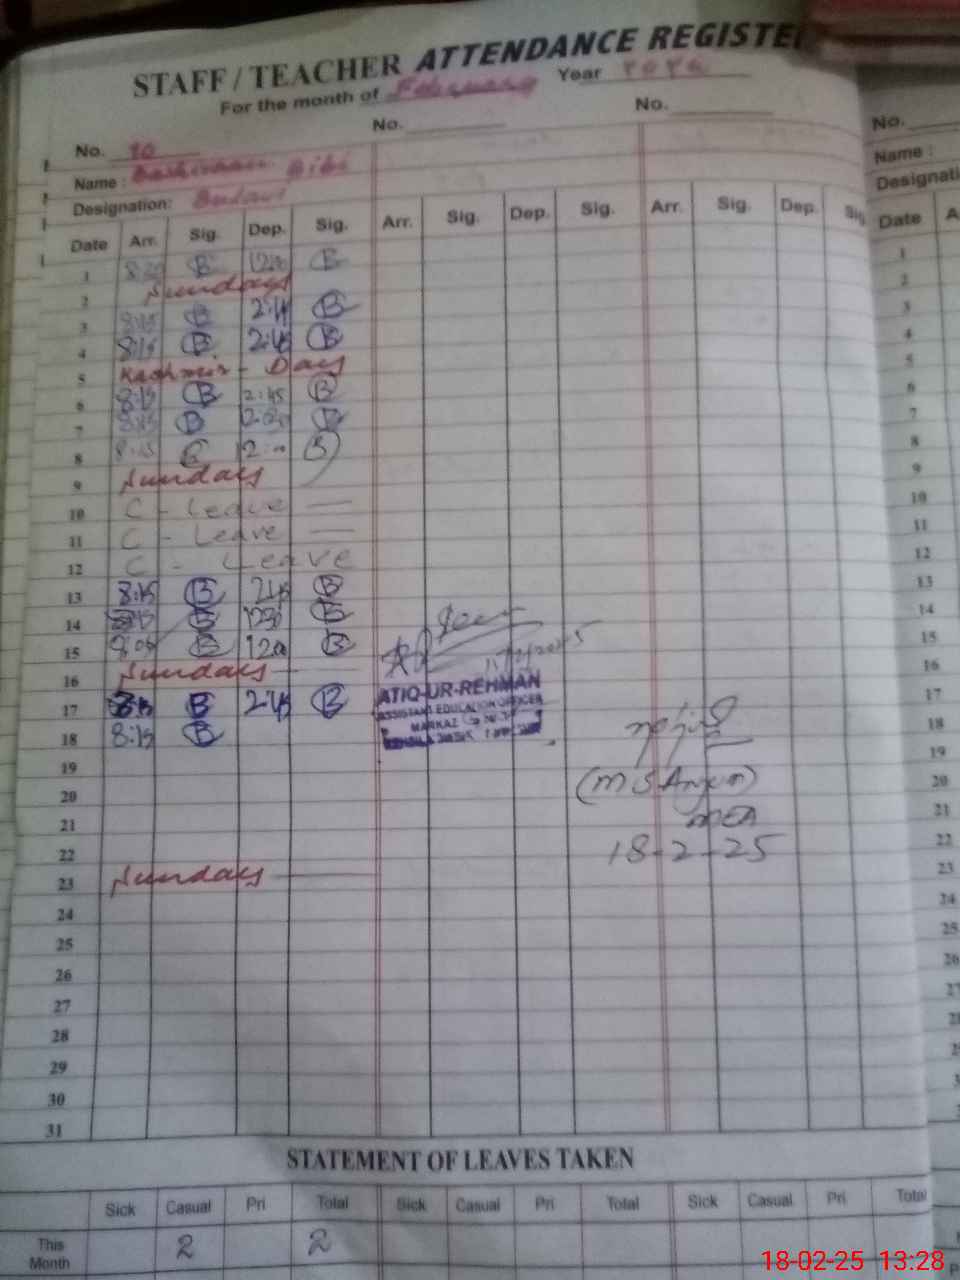 STAFF / TEACHER ATTENDANCE REGISTE
For the month of February Year
No. 10 No. No.
Name : Bibi
Designation:
Date Arr. Sig. Dep. Sig. Arr. Sig. Dep. Sig. Arr. Sig. Dep. Sig
1 B B
2 Sundays
3 8:15 B 2:45 B
4 8:15 B 2:45 B
5 Kashmir - Day
6 8:15 B 2:45 B
7 8:15 B B
8 8:15 12:00 B
9 Sundays
10 C - Leave
11 C - Leave
12 C - Leave
13 8:15 B 2:45 B
14 B 1230 B
15 8:05 B 1200 B
16 Sundays
17 B 2:45 B
18 8:15 B
19
20
21
22
23 Sundays
24
25
26
27
28
29
30
31
ATIQ-UR-REHMAN
ASSISTANT EDUCATION OFFICER
MARKAZ
(M S Anjum)
MEA
18-2-25
STATEMENT OF LEAVES TAKEN
Sick Casual Pri Total Sick Casual Pri Total Sick Casual Pri Total
This Month 2 2
No.
Name :
Designati
Date A
1
2
3
4
5
6
7
8
9
10
11
12
13
14
15
16
17
18
19
20
21
22
23
24
25
26
27
18-02-25 13:28